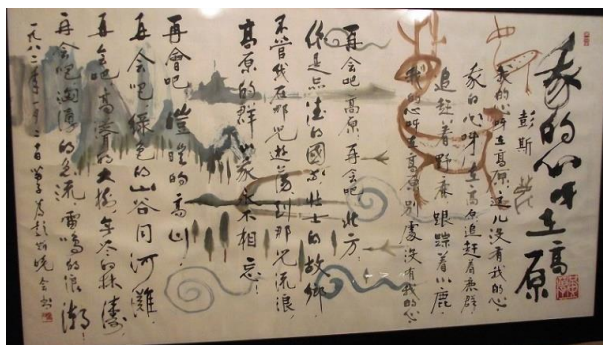 我的心呀在高原
彭斯
我的心呀在高原,这儿没有我的心,
我的心呀在高原,追赶着鹿群,
追赶着野鹿,跟踪着小鹿,
我的心呀在高原,别處没有我的心!
再会吧,高原,再会吧,北方!
你是品德的国家,壮士的故乡
不管我在哪儿游荡,到那儿流浪
高原的群山我永不相忘!
再會吧,皚皚的高山,
再会吧,绿色的山谷同河灘,
再会吧,高聳的大樹,無尽的林濤,
再会吧,汹湧的急流,雷鳴的浪潮!
一九八二年一月二十